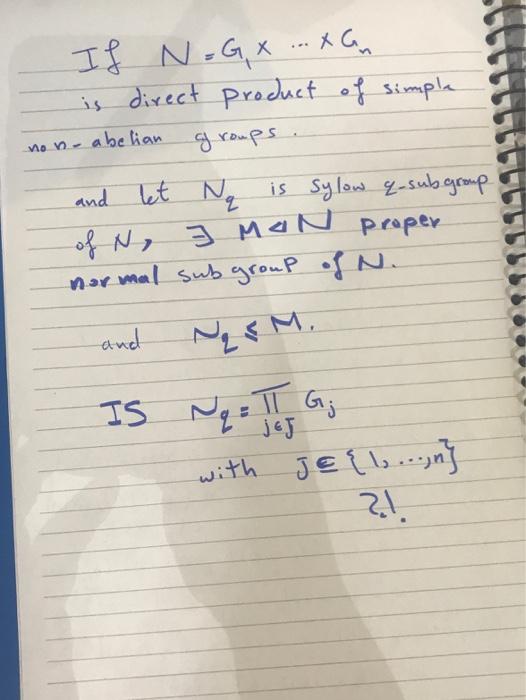 If N = G₁ × ... × Gₙ
is direct product of simple
non-abelian groups.
and let N_q is Sylow q-subgroup
of N, ∃ M ⊲ N proper
normal subgroup of N.
and N_q ≤ M.
IS N_q = ∏_{j∈J} G_j
with J ⊆ {1, ..., n}
?!